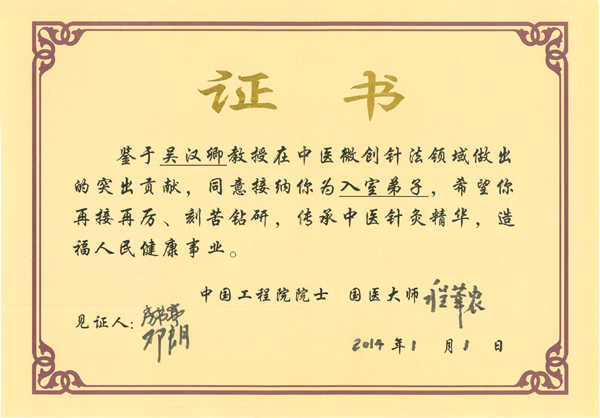 证书
鉴于吴汉卿教授在中医微创针法领域做出
的突出贡献，同意接纳你为入室弟子，希望你
再接再厉、刻苦钻研，传承中医针灸精华，造
福人民健康事业。
中国工程院院士 国医大师 程莘农
见证人：
2014年1月1日